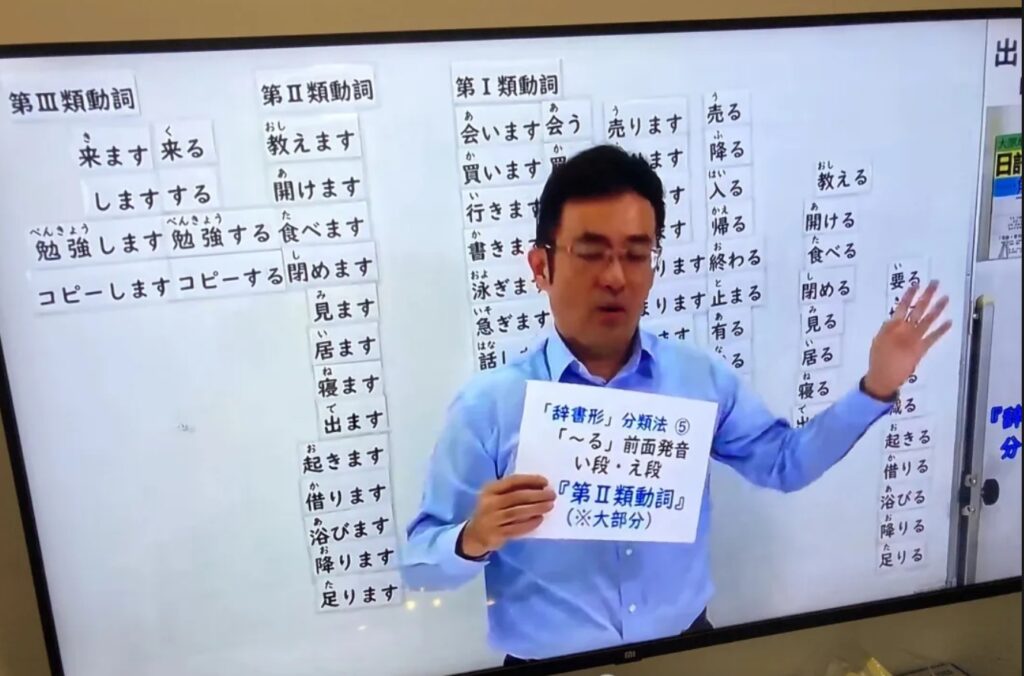 第Ⅲ類動詞
きます くる
来ます 来る
します する
べんきょう べんきょう
勉強します 勉強する
コピーします コピーする
第Ⅱ類動詞
おし
教えます
あ
開けます
た
食べます
し
閉めます
み
見ます
い
居ます
ね
寝ます
で
出ます
お
起きます
か
借ります
あ
浴びます
お
降ります
た
足ります
第Ⅰ類動詞
あ あ
会います 会う
か
買います
い
行きます
か
書きま
およ
泳ぎま
いそ
急ぎます
はな
話し
う
売ります
う
売る
ふ
降る
はい
入る
かえ
帰る
お
終わる
と
止まる
あ
有る
おし
教える
あ
開ける
た
食べる
し
閉める
み
見る
い
居る
ね
寝る
い
要る
お
起きる
か
借りる
あ
浴びる
お
降りる
た
足りる
「辞書形」分類法 ⑤
「～る」前面発音
い段・え段
『第Ⅱ類動詞』
(※大部分)
出
mi